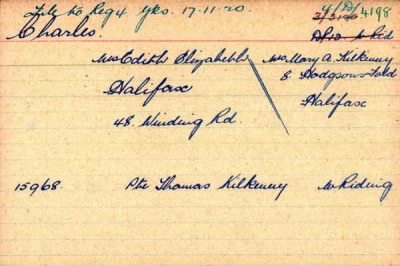 File to Reg 4 yks. 17.11.20. 4/D/4198
Charles.
Mrs Edith Elizabeth Mrs Mary A. Kilkenny
Halifax 8. Hodgsons Fold
Halifax
48. Winding Rd.
15968. Pte Thomas Kilkenny W Riding